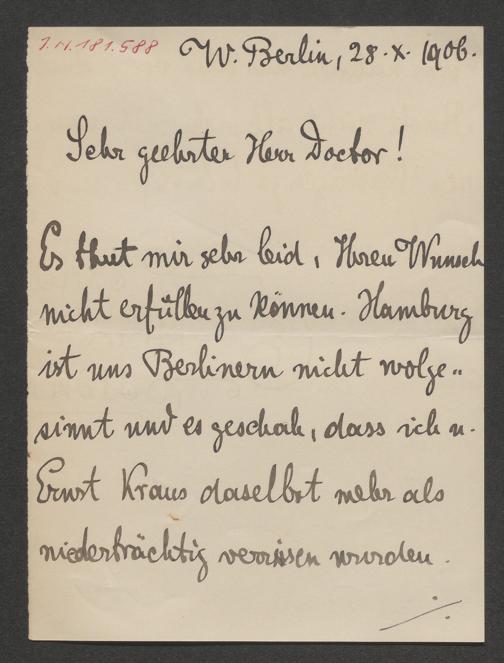 I.N.181.588
W. Berlin, 28.X. 1906.
Sehr geehrter Herr Doctor!
Es thut mir sehr leid, Ihren Wunsch
nicht erfüllen zu können. Hamburg
ist uns Berlinern nicht wolge-
sinnt und es geschah, dass ich u.
Ernst Kraus daselbst mehr als
niederträchtig verrissen wurden.